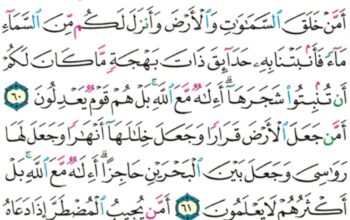 أَمَّنْ خَلَقَ ٱلسَّمَٰوَٰتِ وَٱلْأَرْضَ وَأَنزَلَ لَكُم مِّنَ ٱلسَّمَآءِ
مَآءً فَأَنۢبَتْنَا بِهِۦ حَدَآئِقَ ذَاتَ بَهْجَةٍ مَّا كَانَ لَكُمْ
أَن تُنۢبِتُوا۟ شَجَرَهَآ ۗ أَءِلَٰهٌ مَّعَ ٱللَّهِ ۚ بَلْ هُمْ قَوْمٌ يَعْدِلُونَ ٦٠
أَمَّن جَعَلَ ٱلْأَرْضَ قَرَارًا وَجَعَلَ خِلَٰلَهَآ أَنْهَٰرًا وَجَعَلَ لَهَا
رَوَٰسِىَ وَجَعَلَ بَيْنَ ٱلْبَحْرَيْنِ حَاجِزًا ۗ أَءِلَٰهٌ مَّعَ ٱللَّهِ ۚ بَلْ
أَكْثَرُهُمْ لَا يَعْلَمُونَ ٦١ أَمَّن يُجِيبُ ٱلْمُضْطَرَّ إِذَا دَعَاهُ